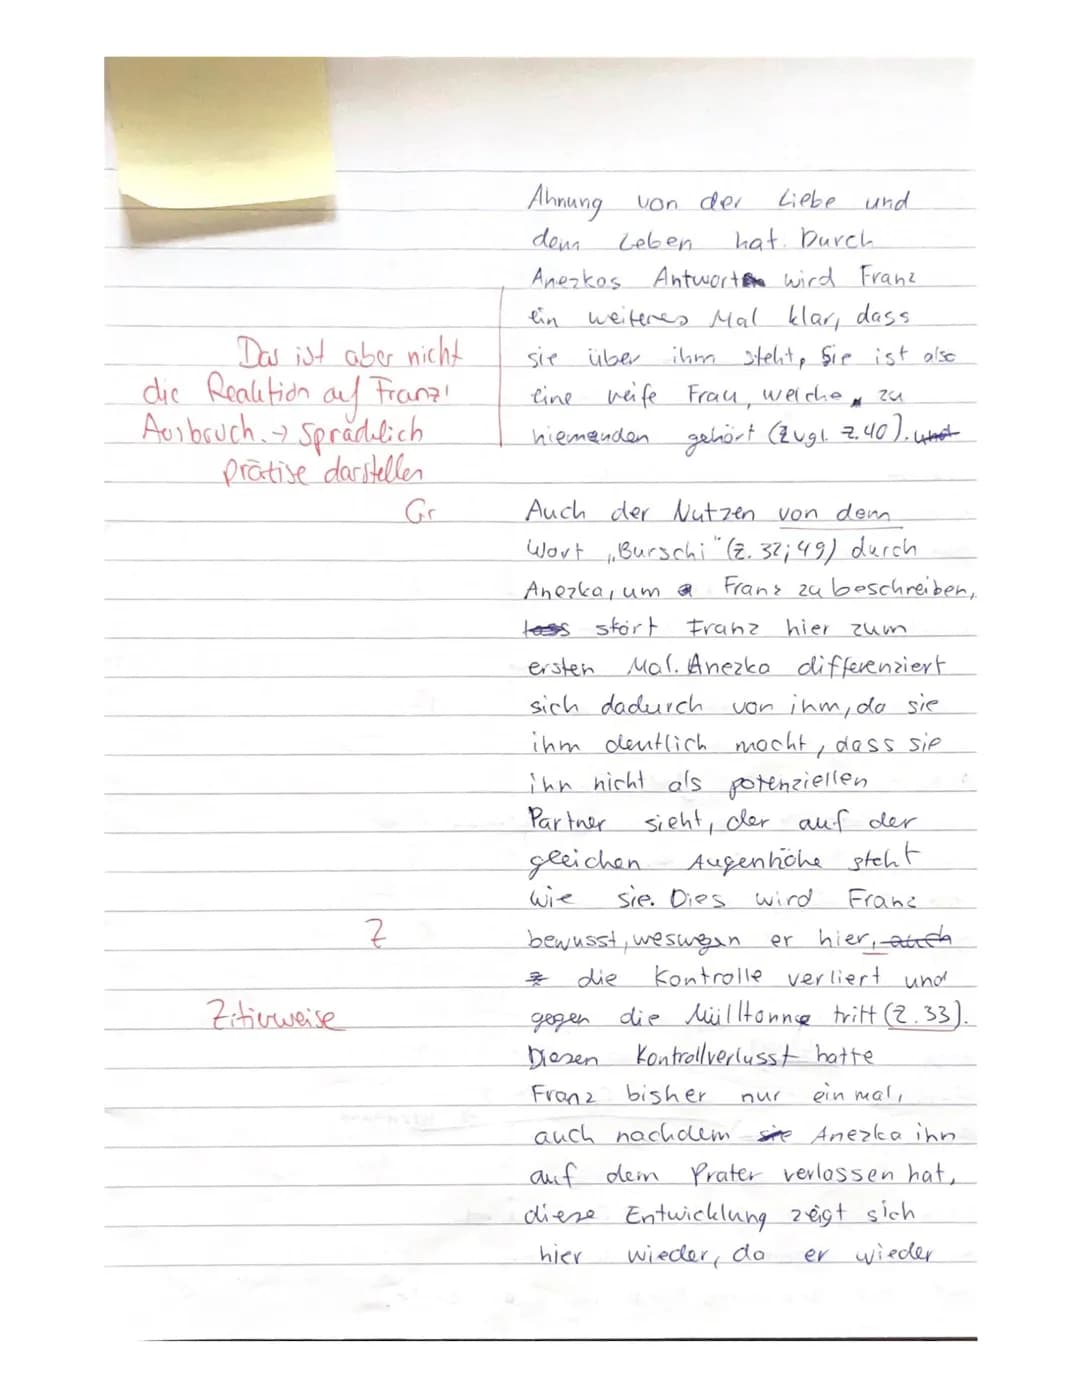 Ahnung von der Liebe und
dem Leben hat. Durch
Anezkas Antwort wird Franz
ein weiteres Mal klar, dass
Das ist aber nicht
sie über ihm steht, Sie ist also
die Reaktion auf Franz'
eine reife Frau, welche zu
Ausbruch. → Sprachlich
niemanden gehört (Zvgl. Z. 40). und
präzise darstellen
Gr
Auch der Nutzen von dem
Wort „Burschi" (Z. 32; 49) durch
Anezka, um Franz zu beschreiben,
lass stört Franz hier zum
ersten Mal. Anezka differenziert
sich dadurch von ihm, da sie
ihm deutlich macht, dass sie
ihn nicht als potenziellen
Partner sieht, der auf der
gleichen Augenhöhe steht
wie sie. Dies wird Franz
Z
bewusst, weswegen er hier, auch
die Kontrolle verliert und
Zitierweise
gegen die Mülltonne tritt (Z. 33).
Diesen Kontrollverlusst hatte
Franz bisher nur einmal,
auch nachdem sie Anezka ihn
auf dem Prater verlassen hat,
diese Entwicklung zeigt sich
hier wieder, da er wieder